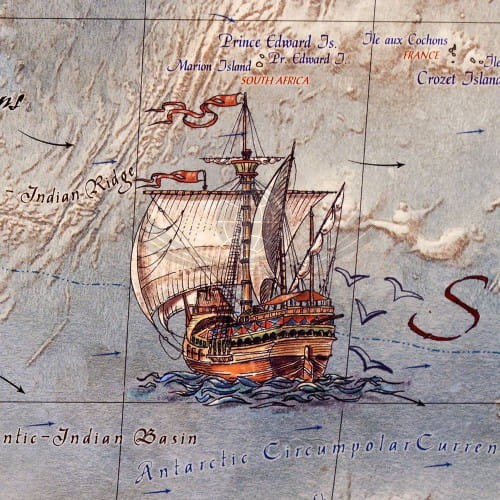 Prince Edward Is.
Île aux Cochons
Marion Island
Pr. Edward I.
FRANCE
Île
SOUTH AFRICA
Crozet Island
ns
- Indian Ridge
S
ntic-Indian Basin
Antarctic Circumpolar Curren